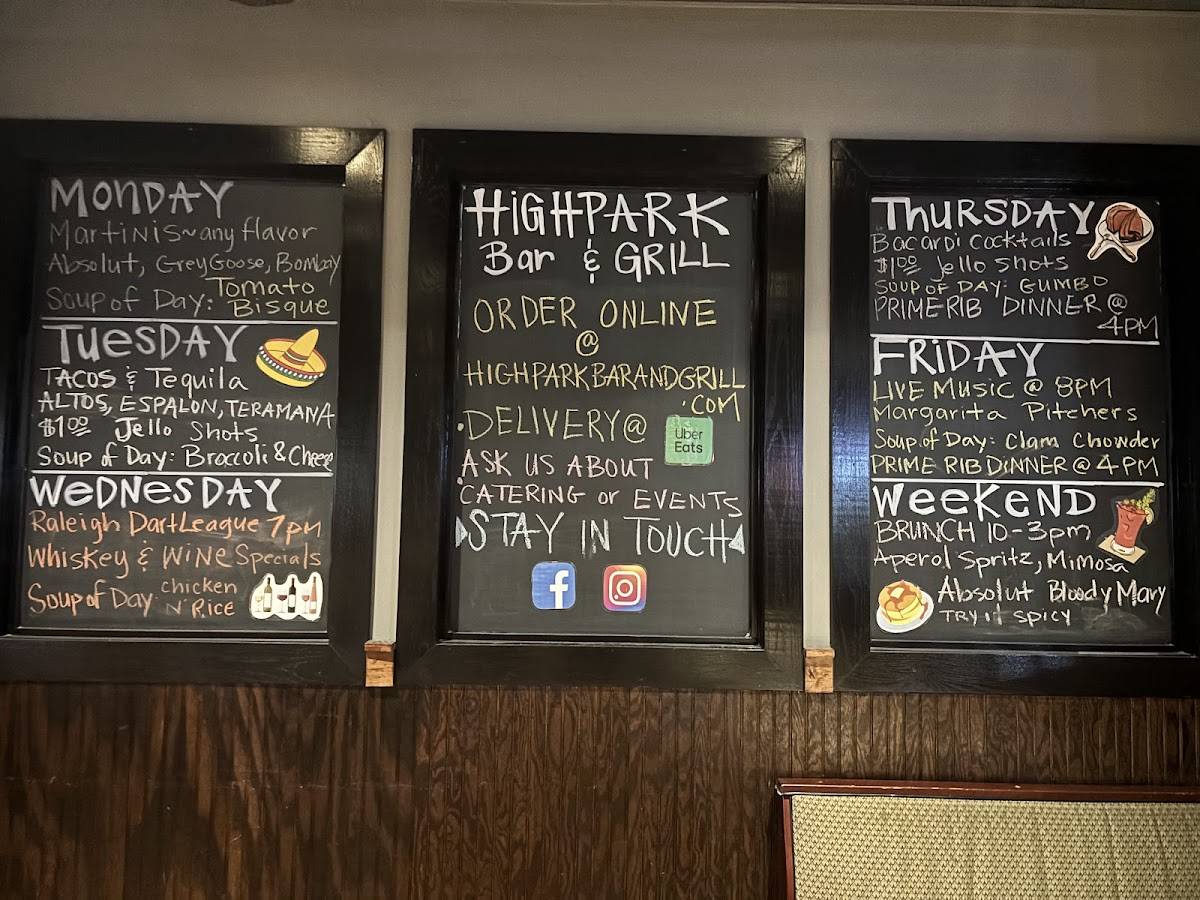 MONDAY
Martinis~any flavor
Absolut, Grey Goose, Bombay
Soup of Day: Tomato
Bisque
TUESDAY
TACOS & Tequila
ALTOS, ESPALON, TERAMANA
$1.00 Jello Shots
Soup of Day: Broccoli & Cheese
WEDNESDAY
Raleigh Dart League 7pm
Whiskey & WINE Specials
Soup of Day chicken
N' Rice
HIGHPARK
Bar & GRILL
ORDER ONLINE
@
HIGHPARKBARANDGRILL
.COM
• DELIVERY@
Uber
Eats
ASK US ABOUT
CATERING or EVENTS
STAY IN TOUCH
THURSDAY
Bacardi Cocktails
$1.00 Jello Shots
SOUP OF DAY: GUMBO
PRIME RIB DINNER @
4PM
FRIDAY
LIVE MUSIC @ 8PM
Margarita Pitchers
Soup of Day: Clam Chowder
PRIME RIB DINNER @ 4PM
WEEKEND
BRUNCH 10-3pm
Aperol Spritz, Mimosa
Absolut Bloody Mary
TRY IT SPICY